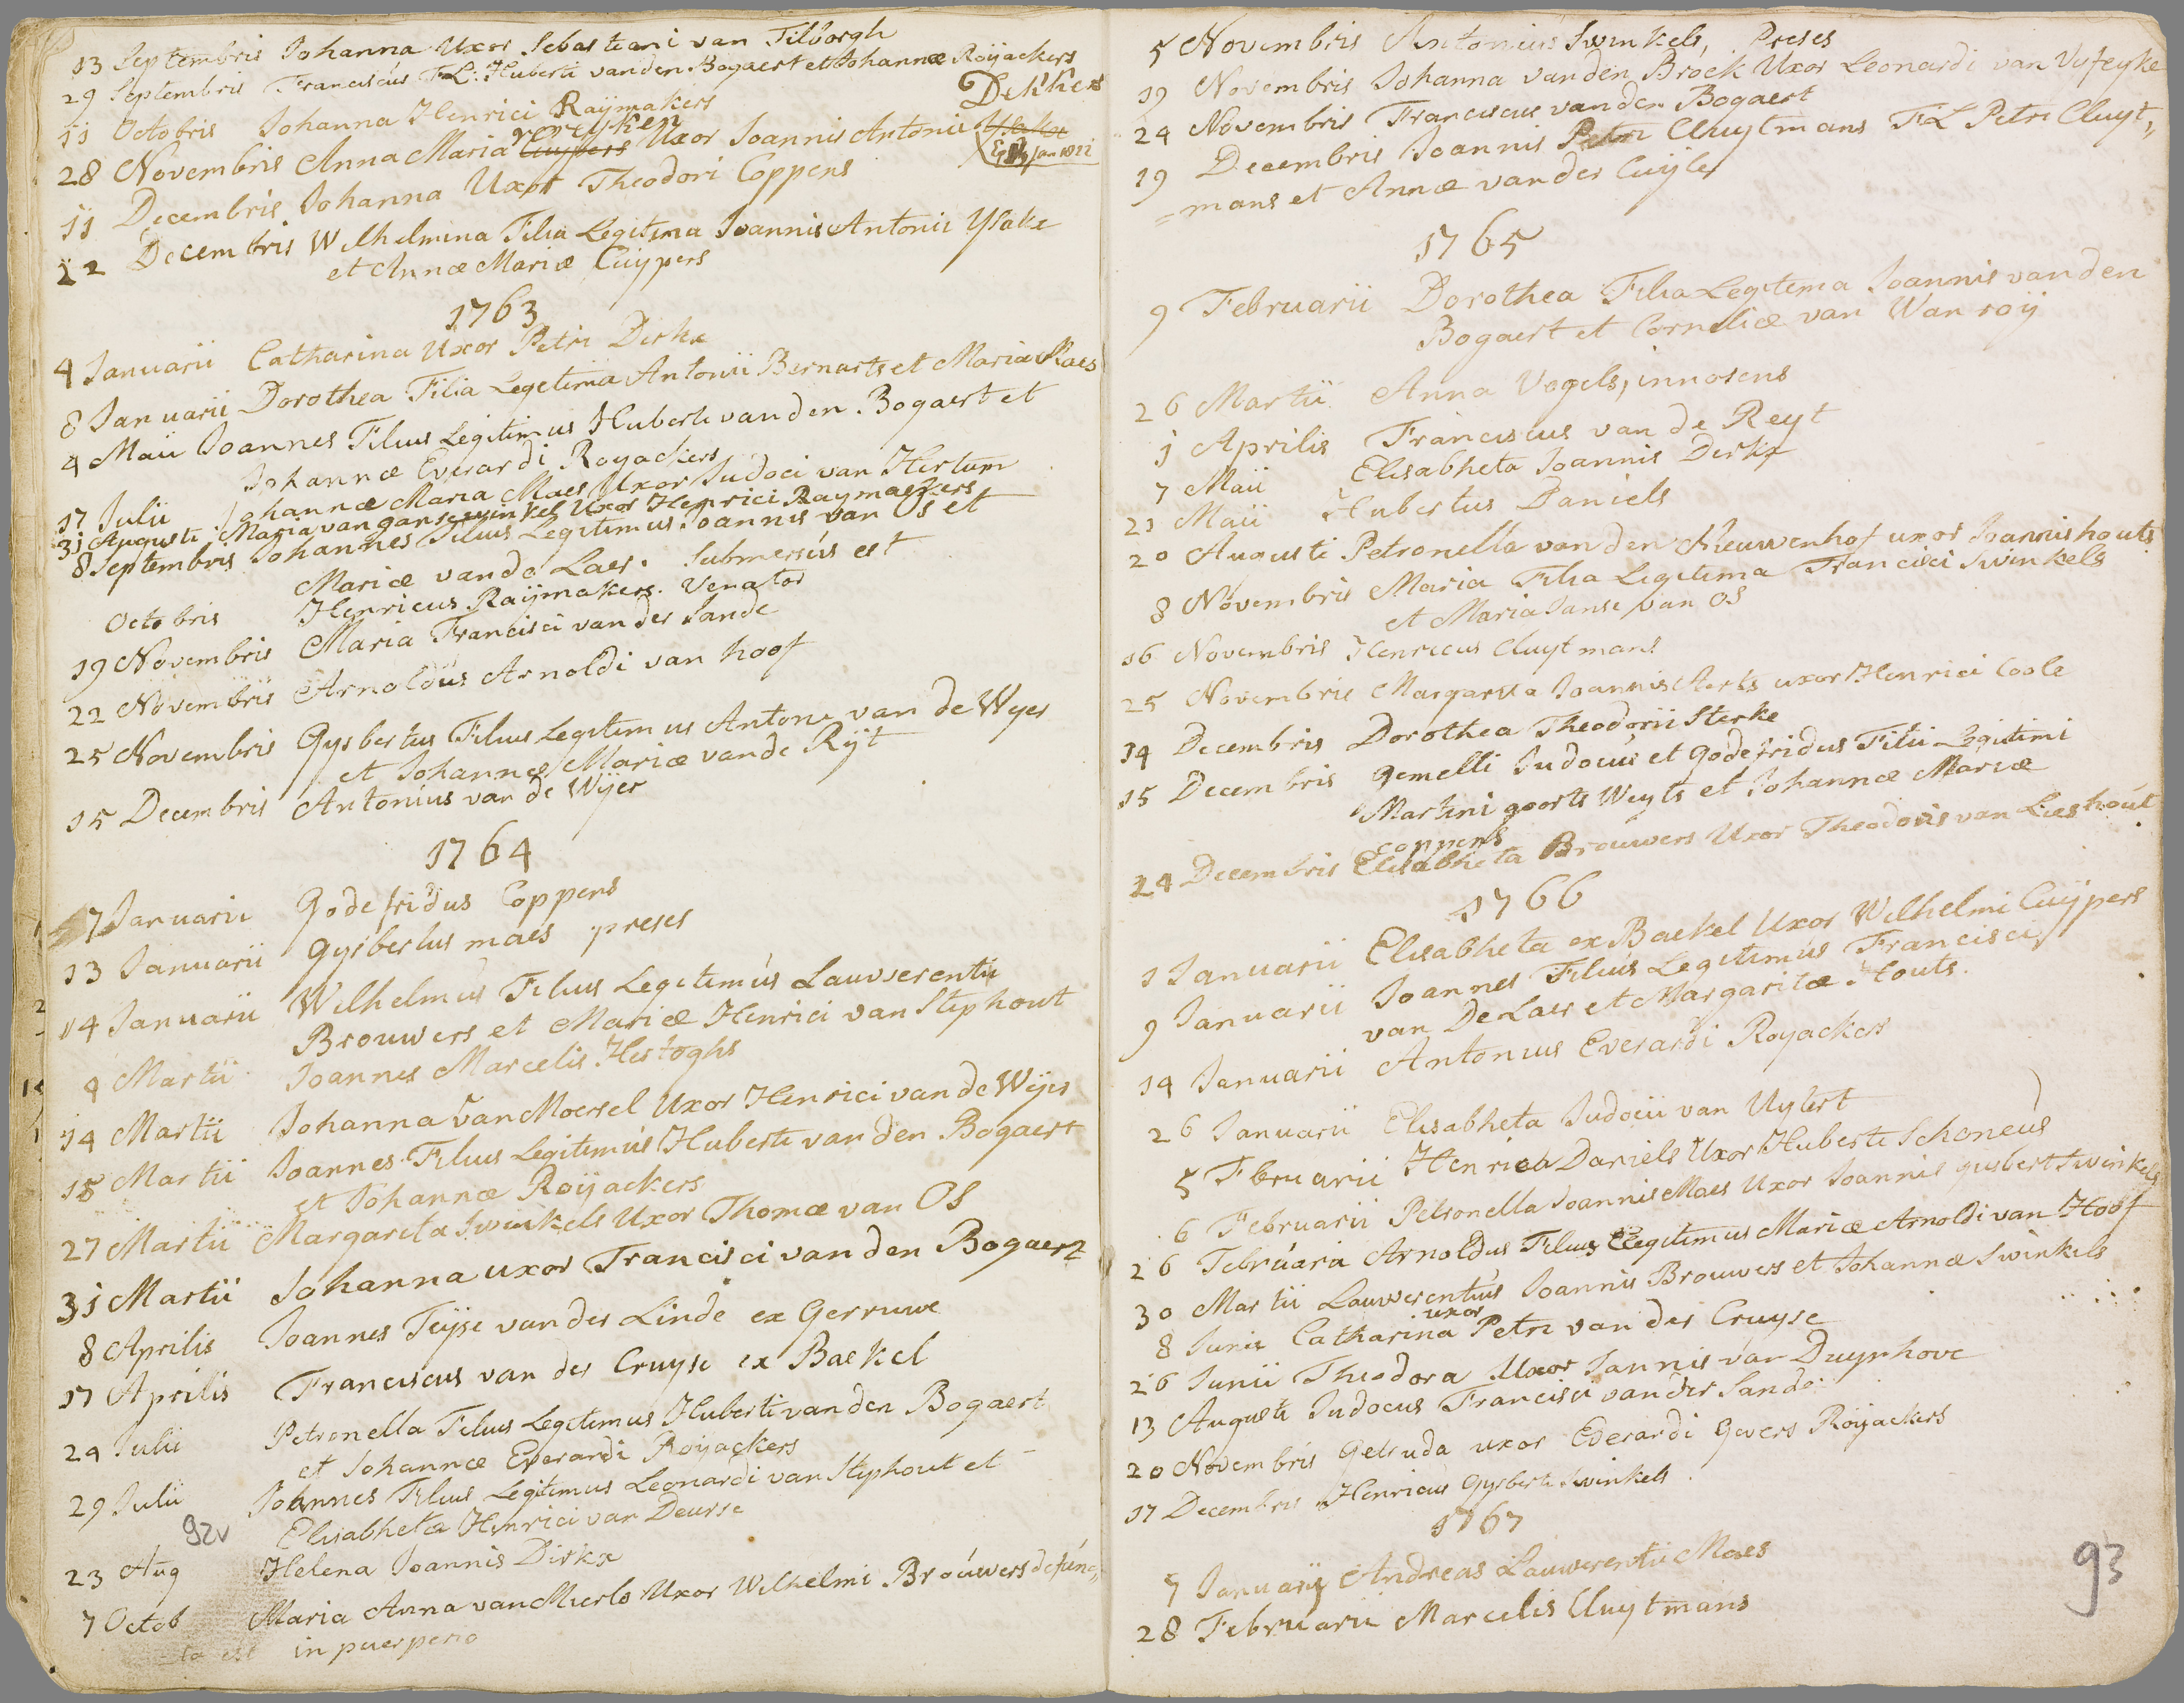 13 Septembris Johanna Uxor Sebastiani van Tilborgh
29 Septembris Franciscus F.L: Huberti vanden Bogaert et Johannæ Roijackers
11 Octobris Johanna Henrici Raijmakers Dekkers
28 Novembris Anna Maria Cuypers verryken Uxor Joannis Antonii Ysake
Jan 1811
11 Decembris Johanna Uxor Theodori Coppens
22 Decembris Wilhelmina Filia Legitima Joannis Antonii Ysake
et Annæ Mariæ Cuijpers
1763
4 Januarii Catharina Uxor Petri Dirkx
8 Januarii Dorothea Filia Legetima Antonii Bernarts et Maria Maes
4 Maii Joannes Filius Legitimus Huberti vanden Bogaert et
Johannæ Everardi Royackers
17 Julii Johannæ Maria Maes Uxor Judoci van Hertum
31 Augusti Maria van gansewinkel Uxor Henrici Raymaekers
8 Septembris Johannes Filius Legitimus Joannis van Os et
Mariæ vande Laer. Submersus est
Octobris Henricus Raijmakers. Venator
19 Novembris Maria Francisci vander Sande
22 Novembris Arnoldus Arnoldi van hoof
25 Novembris Gysbertus Filius Legitimus Antoni van de Wyer
et Johannæ Mariæ vande Rijt
15 Decembris Antonius van de Wijer
1764
7 Januarii Godefridus Coppens
13 Januarii gysbertus maes preses
14 Januarii Wilhelmus Filius Legetimus Lauwerentii
Brouwers et Mariæ Henrici van Stiphout
4 Martii Joannes Marcelis Hertoghs
14 Martii Johanna Van Moersel Uxor Henrici van de Wijer
18 Martii Joannes Filius Legitimus Huberti van den Bogaert
et Johannæ Roijackers
27 Martii Margareta Swinkels Uxor Thomæ van OS
31 Martii Johanna uxor Francisci van den Bogaert
8 Aprilis Joannes Teijse vander Linde ex Gerruwe
17 Aprilis Franciscus van der Cruyse ex Baekel
24 Julii Petronella Filius Legetimus Huberti vanden Bogaert
et Johannæ Everardi Roijackers
29 Julii Johnnes Filius Legitimus Leonardi van Stiphout et
92v Elisabhetæ Henrici van Deurse
23 Aug Helena Joannis Dirkx
7 Octob Maria Anna van Mierlo Uxor Wilhelmi Brouwers defunc„
ta est in puerperio
5 Novembris Antonius Swinkels, Preses
19 Novembris Johanna vanden Brock Uxor Leonardi van Vyfeyke
24 Novembris Franciscus vanden Bogaert
19 Decembris Joannis Petri Cluytmans F L Petri Cluyt„
=mans et Annæ vander Cuijle
1765
9 Februarii Dorothea Filia Legetema Joannis vanden
Bogaert et Corneliæ van Wanroij
26 Martii Anna Vogels, innosens
1 Aprilis Franciscus van de Reyt
7 Maii Elisabheta Joannis Dirkx
21 Maii Hubertus Daniels
20 Augusti Petronella vanden Nieuwenhof uxor Joannis houts
8 Novembris Maria Filia Legetima Francisci Swinkels
et Maria Janse van OS
16 Novembris Henricus Cluytmans
25 Novembris Margareta Joannis Aerts uxor Henrici Coole
14 Decembris Dorothea Theodorii Sterke
15 Decembris gemelli Judocus et godefridus Filii Legitimi
Martini goorts Weyts et Johannæ Mariæ
coppens
24 Decembris Elisabheta Brouwers Uxor Theodoris van Lieshout
1766
1 Januarii Elisabheta ex Baekel Uxor Wilhelmi Cuijpers
9 Januarii Joannes Filius Legetimus Francisci
van De Laer et Margaritæ Houts.
14 Januarii Antonius Everardi Royackers
26 Januarii Elisabheta Judocii van Uytert
5 Fbruarii Henrica Daniels Uxor Huberti Schoneus
6 Februarii Petronella Joannis Maes Uxor Joannis gysbert Swinkels
26 Februarii Arnoldus Filius Legetimus Mariæ Arnoldi van Hoof
30 Martii Lauwerentius Joannis Brouwers et Johannæ Swinkels
8 Junii Catharina uxor Petri van der Cruyse
26 Junii Theodora Uxor Jannis van Duynhove
13 Augusti Judocus Francisci vander Sande
20 Novembris Getruda uxor Everardi Gevers Roijackers
17 Decembris Henricus Gysberti Swinkels
1767
7 Januarij Andreas Lauwerentii Maes
28 Februarii Marcelis Cluytmans
93